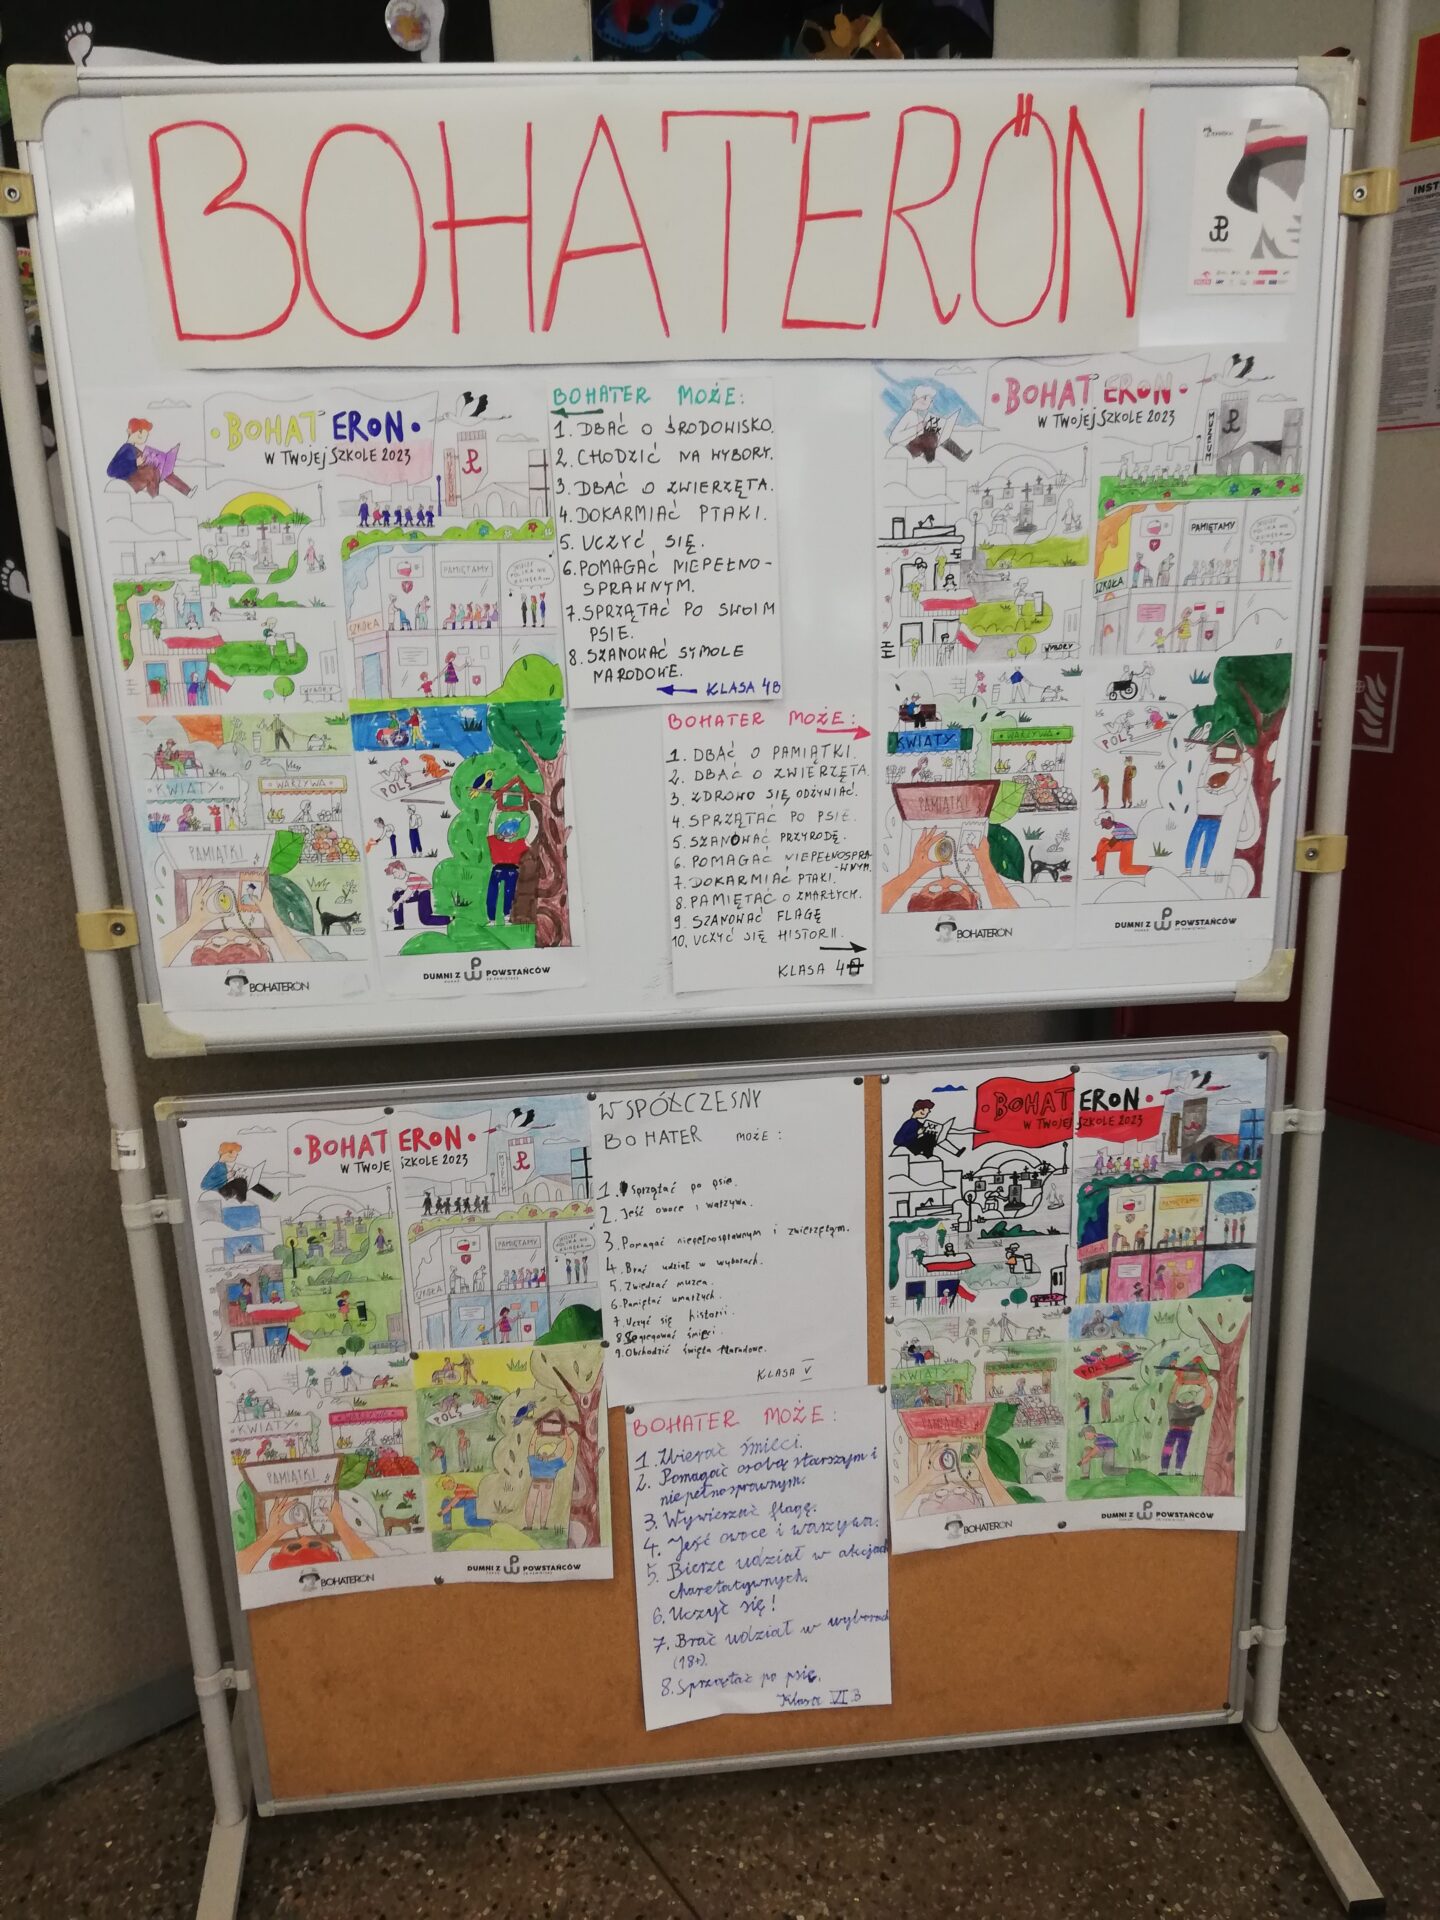 BOHATERÖN
BOHATERON
W TWOJEJ SZKOLE 2023
MUZEUM
PAMIĘTAMY
SZKOŁA
WYBORY
KWIATY
WARZYWA
PAMIĄTKI
POLĘ
BOHATERON
DUMNI Z POWSTAŃCÓW
BOHATER MOŻE:
1. DBAĆ O ŚRODOWISKO.
2. CHODZIĆ NA WYBORY.
3. DBAĆ O ZWIERZĘTA.
4. DOKARMIAĆ PTAKI.
5. UCZYĆ SIĘ.
6. POMAGAĆ NIEPEŁNO-
SPRAWNYM.
7. SPRZĄTAĆ PO SWOIM
PSIE.
8. SZANOWAĆ SYMOLE
NARODOWE.
KLASA 4B
BOHATER MOŻE:
1. DBAĆ O PAMIĄTKI.
2. DBAĆ O ZWIERZĘTA.
3. ZDROWO SIĘ ODŻYWIAĆ.
4. SPRZĄTAĆ PO PSIE.
5. SZANOWAĆ PRZYRODĘ.
6. POMAGAĆ NIEPEŁNOSPRA-
-WNYM.
7. DOKARMIAĆ PTAKI.
8. PAMIĘTAĆ O ZMARŁYCH.
9. SZANOWAĆ FLAGĘ
10. UCZYĆ SIĘ HISTORII.
KLASA 4
BOHATERON
W TWOJEJ SZKOLE 2023
MUZEUM
PAMIĘTAMY
SZKOŁA
WYBORY
KWIATY
WARZYWA
PAMIĄTKI
POLĘ
BOHATERON
DUMNI Z POWSTAŃCÓW
BOHATERON
W TWOJEJ SZKOLE 2023
MUZEUM
PAMIĘTAMY
SZKOŁA
KWIATY
WARZYWA
PAMIĄTKI
POLĘ
BOHATERON
DUMNI Z POWSTAŃCÓW
WSPÓŁCZESNY
BOHATER MOŻE:
1. Sprzątać po psie.
2. Jeść owoce i warzywa.
3. Pomagać niepełnosprawnym i zwierzętym.
4. Brać udział w wyborach.
5. Zwiedzać muzea.
6. Pamiętać umarłych.
7. Uczyć się historii.
8. Segregować śmieci.
9. Obchodzić święta Narodowe.
KLASA V
BOHATER MOŻE:
1. Zbierać śmieci.
2. Pomagać osobą starszym i
niepełnosprawnym.
3. Wywieszać flagę.
4. Jeść owoce i warzywa.
5. Bierze udział w akcjach
charetatywnych.
6. Uczyć się!
7. Brać udział w wyborach
(18+).
8. Sprzątać po psie.
Klasa VI B
BOHATERON
W TWOJEJ SZKOLE 2023
PAMIĘTAMY
KWIATY
PAMIĄTKI
POLĘ
BOHATERON
DUMNI Z POWSTAŃCÓW